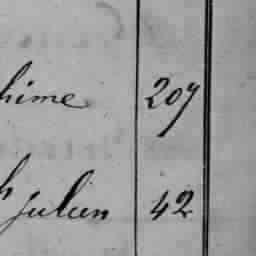 hime 207
h Julien 42